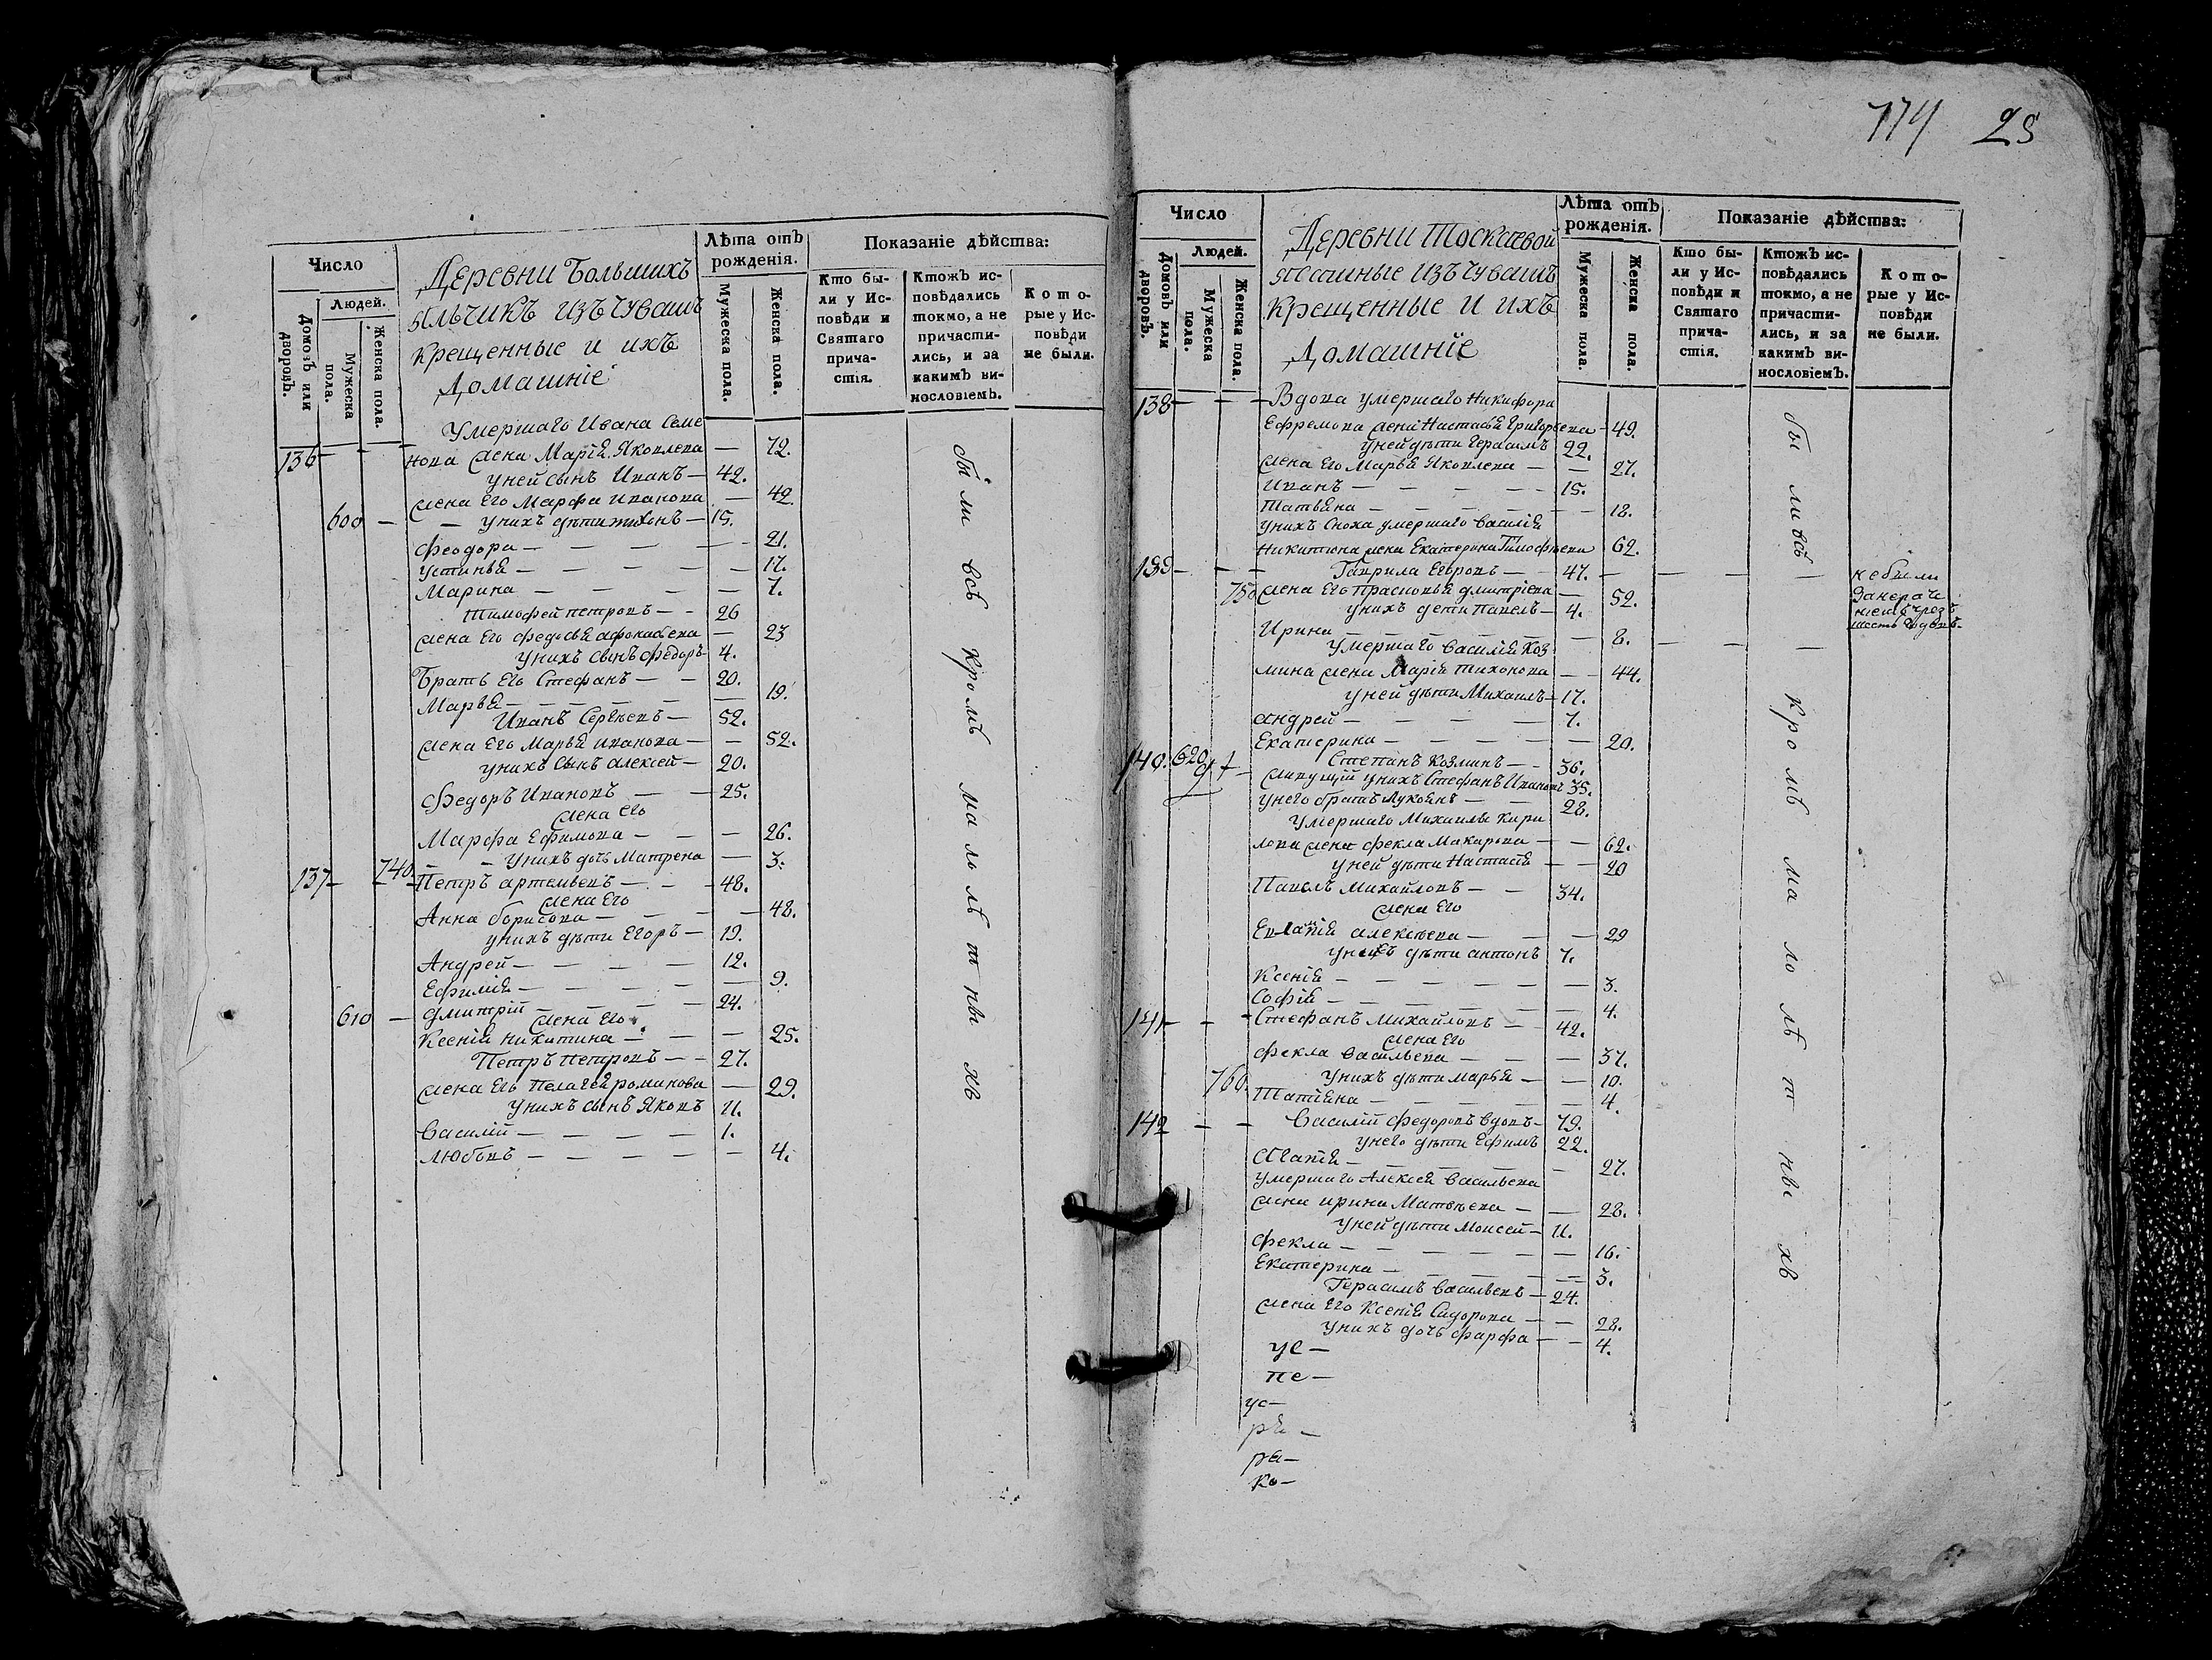 Число
Людей.
Домовъ или дворовъ.
Мужеска пола.
Женска пола.
Деревни Большихъ
яльчикъ изъ чувашъ
крещенные и ихъ
Домашніе
Лѣта отъ рожденія.
Мужеска пола.
Женска пола.
Показаніе дѣйства:
Кто были у Исповѣди и Святаго причастія.
Ктожъ исповѣдались токмо, а не причастились, и за какимъ винословіемъ.
Которые у Исповѣди не были.
Умершаго Ивана Семе
136 — — нова жена Марія Яковлева — 72.
у ней сынъ Иванъ — 42.
жена его Марфа Иванова — 42
600 — — у нихъ дѣти тихонъ — 15.
Феодора — — — — 21.
Устинья — — — — 17.
Марина — — — — 7.
Тимофей петровъ — - 26
жена его федосья — 23
у нихъ сынъ федоръ 4.
Братъ его Стефанъ — — 20.
Марья — — — — 19.
Иванъ Сергѣевъ — 52.
жена его Марья иванова — — 52.
у нихъ сынъ алексей — 20.
Федоръ Ивановъ — — 25.
жена его
Марфа Ефимова — — — 26.
740. — — у нихъ дочь Матрена — 3.
137 — — Петръ артемьевъ — - — 48.
жена Его
Анна борисова — — — 48.
у нихъ дѣти Егоръ — 19.
Андрей — — — — 12.
Ефимія — — — — 9.
610 — дмитрій — — — — 24.
жена его
Ксенія никитина — — — 25.
Петръ петровъ — - 27.
жена Его Пелагея романова — 29.
у нихъ сынъ Яковъ 11.
Василій — — — — 1.
Любовь — — — — — 4.
были всѣ кромѣ малолѣтныхъ
174 25
Число
Людей.
Домовъ или дворовъ.
Мужеска пола.
Женска пола.
Деревни Тоскаевой
ясашные изъ чувашъ
крещенные и ихъ
Домашніе
Лѣта отъ рожденія.
Мужеска пола.
Женска пола.
Показаніе дѣйства:
Кто были у Исповѣди и Святаго причастія.
Ктожъ исповѣдались токмо, а не причастились, и за какимъ винословіемъ.
Которые у Исповѣди не были.
138 — — — Вдова умершаго Никифора
Ефремова жена Настасья Григорьева — 49.
у ней дѣти Герасимъ 22.
жена Его Марья Яковлева — — 27.
Иванъ — — — — - 15.
Татьяна — — — — — 18.
у нихъ сноха умершаго василія
Никитина жена Екатерина Тимофѣева 62.
139 — — — Гаврила Егоровъ — — 47. — — — — не были
750 жена Его Прасковья дмитріева — 52. за
у нихъ дети Павелъ — 4. чрезъ
шесть годовъ
Ирина — — — — 8. — — —
Умершаго василія Коз
мина жена Марія тихонова — — 44.
у ней дѣти Михаилъ — 17.
андрей — — — — 7.
Екатерина — — — — — 20.
140. 620 Степанъ Козминъ — - 36.
живущій у нихъ Стефанъ Ивановъ 35.
у него братъ Лукоянъ — — 28.
Умершаго Михаила Кири
лова жена фекла Макарова — — 62.
у ней дѣти Настасія — — 20
Павелъ Михайловъ — — 34.
жена Его
алексѣева — — — 29
у нихъ дѣти антонъ 7.
Ксенія — — — — — 3.
Софія — — — — — 4.
141 — — — Стефанъ Михайловъ — — 42.
жена Его
фекла васильева — — — 37.
у нихъ дѣти марья — — 10.
760. Татіяна — — — — — 4.
142 — — Василій федоровъ вдовъ — 79.
у него дѣти Ефимъ 22.
Агапія — — — — — 27.
умершаго Алексея Васильева
жена ирина Матвѣева — — 28.
у ней дѣти Моисей — 11.
фекла — — — — — 16.
Екатерина — — — — — 3.
Герасимъ васильевъ — 24.
жена Его Ксенія Сидорова — — 28.
у нихъ дочь фарфа — — 4.
были всѣ кромѣ малолѣтныхъ
ус —
пе —
ус —
ря —
ра —
ко —